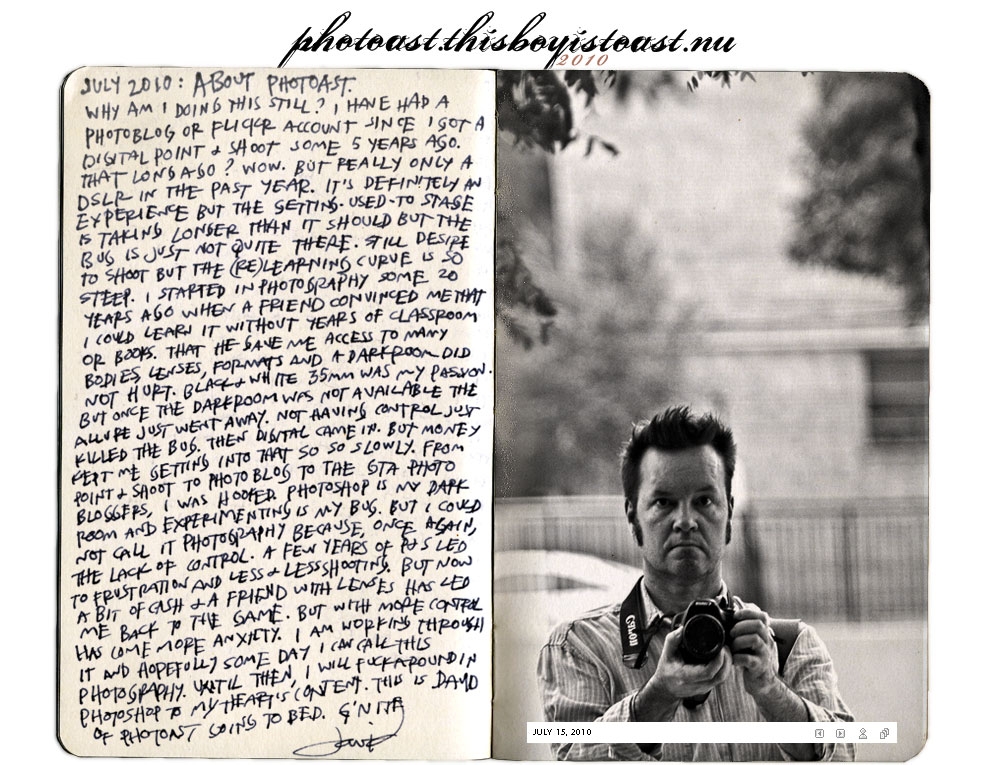 photoast.thisboyistoast.nu
2010
JULY 2010: ABOUT PHOTOAST.
WHY AM I DOING THIS STILL? I HAVE HAD A
PHOTOBLOG OR FLICKR ACCOUNT SINCE I GOT A
DIGITAL POINT & SHOOT SOME 5 YEARS AGO.
THAT LONG AGO? WOW. BUT REALLY ONLY A
DSLR IN THE PAST YEAR. IT'S DEFINITELY AN
EXPERIENCE BUT THE GETTING-USED-TO STAGE
IS TAKING LONGER THAN IT SHOULD BUT THE
BUG IS JUST NOT QUITE THERE. STILL DESIRE
TO SHOOT BUT THE (RE)LEARNING CURVE IS SO
STEEP. I STARTED IN PHOTOGRAPHY SOME 20
YEARS AGO WHEN A FRIEND CONVINCED ME THAT
I COULD LEARN IT WITHOUT YEARS OF CLASSROOM
OR BOOKS. THAT HE GAVE ME ACCESS TO MANY
BODIES, LENSES, FORMATS AND A DARKROOM DID
NOT HURT. BLACK & WHITE 35mm WAS MY PASSION.
BUT ONCE THE DARKROOM WAS NOT AVAILABLE THE
ALLURE JUST WENT AWAY. NOT HAVING CONTROL JUST
KILLED THE BUG. THEN DIGITAL CAME IN. BUT MONEY
KEPT ME GETTING INTO THAT SO SO SLOWLY. FROM
POINT & SHOOT TO PHOTO BLOG TO THE GTA PHOTO
BLOGGERS, I WAS HOOKED. PHOTOSHOP IS MY DARK
ROOM AND EXPERIMENTING IS MY BUG. BUT I COULD
NOT CALL IT PHOTOGRAPHY BECAUSE, ONCE AGAIN,
THE LACK OF CONTROL. A FEW YEARS OF P&S LED
TO FRUSTRATION AND LESS & LESS SHOOTING. BUT NOW
A BIT OF CASH & A FRIEND WITH LENSES HAS LED
ME BACK TO THE GAME. BUT WITH MORE CONTROL
HAS COME MORE ANXIETY. I AM WORKING THROUGH
IT AND HOPEFULLY SOME DAY I CAN CALL THIS
PHOTOGRAPHY. UNTIL THEN, I WILL FUCK AROUND IN
PHOTOSHOP TO MY HEART'S CONTENT. THIS IS DAVID
OF PHOTOAST GOING TO BED. G'NITE
Canon
JULY 15, 2010